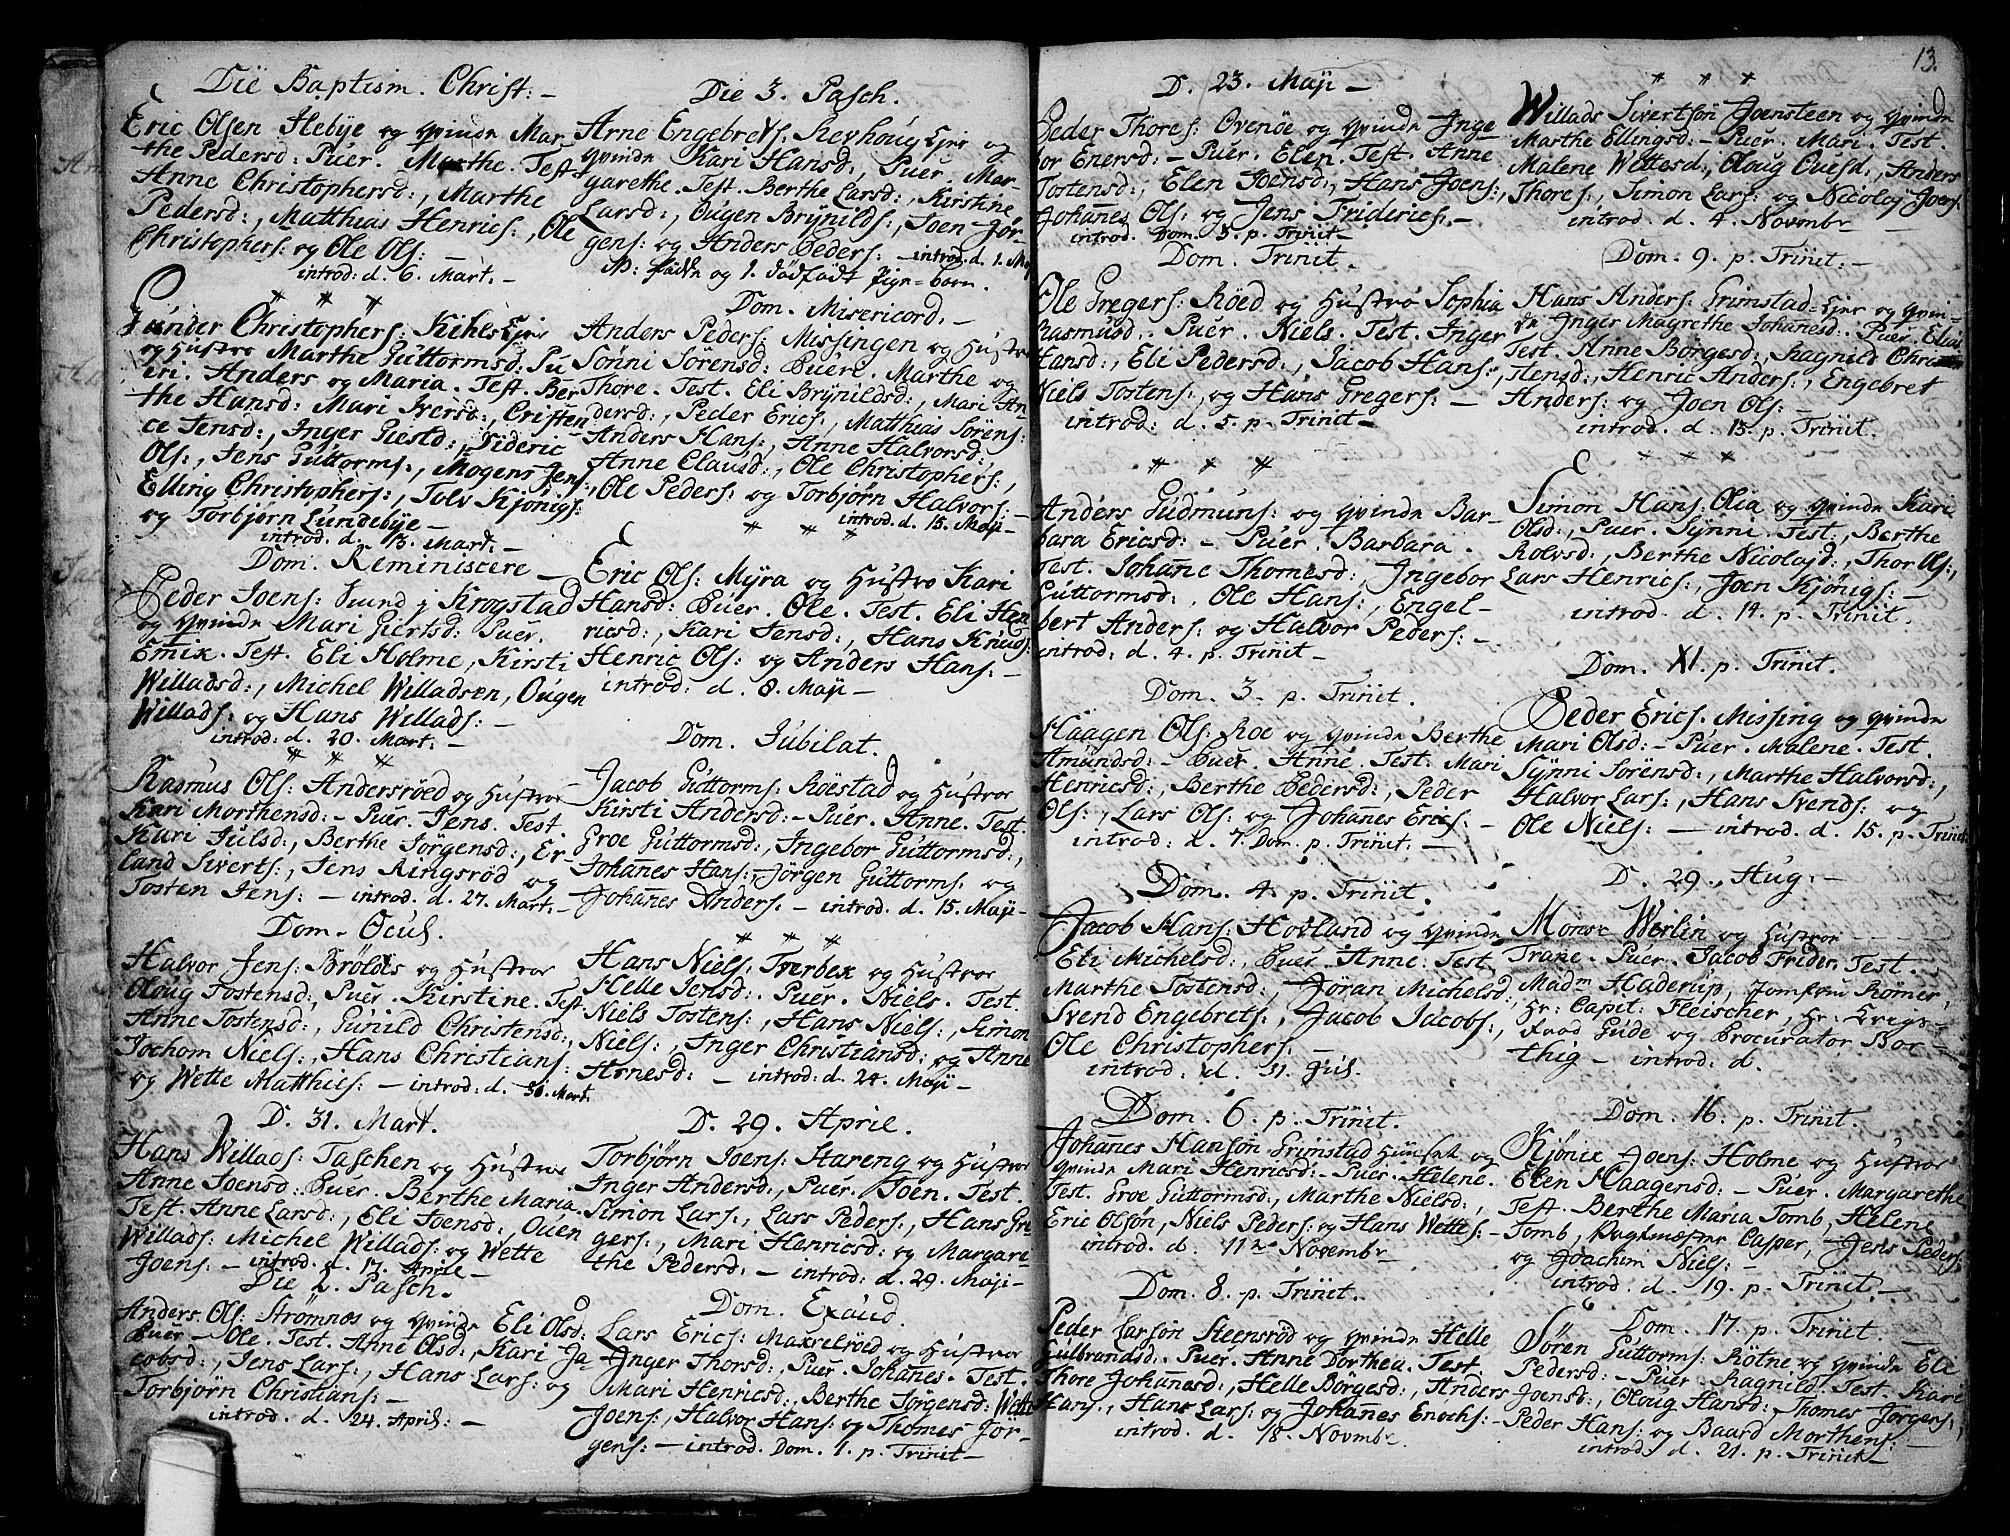 Die Baptism. Christ: –
Eric Olsen Hebÿe og qvinde Mar-
the Pedersd: Puer. Marthe. Test.
Anne Christophersd:, Marthe
Pedersd:, Matthias Henrics:, Ole
Christophers: og Ole Ols: –
introd: d. 6. Mart. –
* * *
Gunder Christophers: Kihls Ejer
og Hustro Marthe Guttormsd. Pu
eri. Anders og Maria. Test. Ber
the Hansd: Mari Iversd:, Cristen-
ce Jensd:, Inger Giestd:, Frideric
Ols:, Jens Guttorms:, Mogens Jens:,
Elling Christophers:, Tolv Kjönigs:
og Torbjørn Lundebÿe –
introd. d. 13. Mart. –
Dom. Reminiscere –
Peder Joens: Lund j Krogstad
og qvinde Mari Giertsd: Puer.
Emix. Test. Eli Holme, Kirsti
Willadsd:, Michel Willadsen, Ougen
Willads: og Hans Willads: –
introd: d. 20. Mart: –
* * *
Rasmus Ols: Andersröed og Hustroe
Kari Morthensd: – Puer. Jens. Test.
Kari Julsd:, Berthe Jörgensd:, Er-
land Siverts:, Jens Ringsröd og
Tosten Jens: – introd: d. 27. Mart: –
Dom. Ocul.
Halvor Jens: Bröldes og Hustroe
Oloug Tostensd:, Puer. Kirstine. Test.
Anne Tostensd:, Gunild Christensd:,
Jochom Niels:, Hans Christians:
og Wette Matthies: – introd: d. 30. Mart.
D. 31. Mart.
Hans Willads: Taschen og Hustroe
Anne Joensd: Puer. Berthe Maria.
Test. Anne Larsd:, Eli Joensd:, Ouen
Willads: Michel Willads: og Wette
Joens: – introd. d. 17. Aprile –
Die 2. Pasch.
Anders Ols: Strömnes og qvinde Eli Olsd:
Puer – Ole. Test. Anne Olsd:, Kari Ja-
cobsd:, Jens Lars:, Hans Lars: og
Torbjörn Christians: –
introd. d. 24. April: –
Die 3. Pasch.
Arne Engebrets. Revhoug Ejer og
qvinde Kari Hansd:, Puer. Mar-
garethe. Test. Berthe Larsd:, Kirstine
Larsd:, Ougen Brÿnilds:, Joen Jör-
gens: og Anders Peders: – introd. d. 1. Maj
NB: födde og 1. dödfödt Pige-barn.
Dom. Misericord. –
Anders Peders: Missingen og Hustro
Sönni Sörensd: Pueri. Marthe og
Thore. Test. Eli Brÿnildsd:, Mari An
dersd:, Peder Erics:, Matthias Sörens:
Anders Hans:, Anne Halvorsd:,
Anne Clausd:, Ole Christophers:,
Ole Peders: og Torbjörn Halvors: –
introd. d. 15. Maji –
* * *
Eric Ols: Mÿra og Hustro Kari
Hansd: Puer. Ole. Test. Eli Hen
ricsd:, Kari Jensd:, Hans Knuds:
Henric Ols: og Anders Hans: –
introd: d. 8. Maji –
Dom. Jubilat.
Jacob Guttorms: Röestad og Hustroe
Kirsti Andersd: – Puer. Anne. Test.
Groe Guttormsd:, Ingebor Guttormsd:,
Johanes Hans:, Jörgen Guttorms: og
Johanes Anders: – introd. d. 15. Maji –
* * *
Hans Niels: Tverbek og Hustroe
Helle Jensd: Puer. Niels. Test.
Niels Tostens:, Hans Niels:, Simon
Niels:, Inger Christiansd: og Anne
Arnesd: – introd: d. 24. Maji –
D. 29. April.
Torbjörn Joens: Hareng og Hustroe
Inger Andersd:, Puer. Joen. Test.
Simon Lars:, Lars Peders:, Hans Gre
gers:, Mari Henricsd: og Margare-
the Pedersd: – introd: d. 29. Maji –
Dom. Exaud.
Lars Erics: Makrelröed og Hustroe
Inger Thorsd:, Puer. Johanes. Test.
Mari Henricsd:, Berthe Jörgensd: Wette
Joens:, Halvor Hans: og Thomes Jör-
gens: – introd. Dom. 1. p. Trinit –
D. 23. Maji –
Peder Thores: Ovenöe og qvinde Inge
bor Enersd: – Puer. Elen. Test. Anne
Tostensd:, Elen Joensd:, Hans Joens:,
Johanes Ols: og Jens Friderics: –
introd. Dom. 5. p. Trinit –
Dom. Trinit.
Ole Gregers: Röed og Hustro Sophia
Rasmusd. Puer. Niels. Test. Inger
Hansd:, Eli Pedersd:, Jacob Hans:,
Niels Tostens:, og Hans Gregers: –
introd: d. 5. p. Trinit –
* * *
Anders Gudmuns: og qvinde Bar-
bara Ericsd: – Puer. Barbara.
Test. Johane Thomesd:, Ingebor
Guttormsd:, Ole Hans:, Engel-
bert Anders: og Halvor Peders: –
introd: d. 4. p. Trinit –
Dom. 3. p. Trinit.
Haagen Ols: Roe og qvinde Berthe
Amundsd: – Puer. Anne. Test. Mari
Henricsd:, Berthe Pedersd:, Peder
Ols:, Lars Ols: og Johanes Erics: –
introd: d. 7. Dom. p. Trinit. –
Dom. 4. p. Trinit.
Jacob Hans: Hovland og qvinde
Eli Michelsd:, Puer. Anne. Test.
Marthe Tostensd:, Jöran Michelsd:,
Svend Engebrets:, Jacob Jacobs:,
Ole Christophers:
introd. d. 31. Jul.
Dom. 6. p. Trinit.
Johanes Hansön Grimstad Huuset og
qvinde Mari Henricsd: – Puer. Helene.
Test. Groe Guttormsd:, Marthe Nielsd:,
Eric Olsön, Niels Peders: og Hans Wettes: –
introd. d. 11 Novembr
Dom. 8. p. Trinit.
Peder Larsön Steensröd og qvinde Helle
Gulbrandsd. Puer. Anne Dorthea. Test.
Thore Johanesd:, Helle Börgesd:, Anders
Hans:, Hans Lars: og Johanes Enochs: –
introd. d. 18. Novembr.
13.
* * *
Willads Sivertsön Joensteen og qvinde
Marthe Ellingsd: – Puer. Mari. Test.
Malene Wettesd:, Oloug Ouesd:, Anders
Thores:, Simon Lars: og Nicolaj Joens:
introd. d. 4. Novembr
Dom. 9. p. Trinit: –
Hans Anders: Grimstad-Ejer og qvin-
de Inger Magrethe Johanesd:. Puer. Elias
Test. Anne Börgesd:, Ragnild Chri
stensd:, Henric Anders:, Engebret
Anders: og Joen Ols: –
introd. d. 15. p. Trinit.
* * *
Simon Hans: Olia og qvinde Kari
Olsd:, Puer. Synni. Test:, Berthe
Rolvsd:, Berthe Nicolajd:, Thor Ols:,
Lars Henrics:, Joen Kjönigs: –
introd. d. 14. p. Trinit.
Dom. XI. p. Trinit.
Peder Erics. Missing og qvinde
Mari Olsd: – Puer. Malene. Test.
Synni Sörensd:, Marthe Halvorsd:,
Halvor Lars:, Hans Svends: og
Ole Niels: – introd. d. 15. p. Trinit
D. 29. Aug: –
Monsr Werlin og Hustroe – –
Trane. Puer. Jacob Frider. Test.
Madm Haderup, Jomfru Römer,
Hr: Capit: Fleischer, Hr: Krigs-
Raad Gude og Procurator Bor-
thig – introd: d.
Dom. 16. p. Trinit.
Kjönix Joens: Holme og Hustroe
Elen Haagensd: – Puer. Margarethe
Test. Berthe Maria Tomb, Helene
Tomb, Pagtmester Casper, Jens Peders:
og Joachim Niels: –
introd: d. 19. p. Trinit. –
Dom. 17. p. Trinit –
Sören Guttorms: Rötne og qvinde Eli
Pedersd: – Puer. Ragnild. Test. Kari
Joensd:, Oloug Hansd:, Thomes Jörgens:,
Peder Hans: og Baard Morthens: –
introd: d. 21. p. Trinit –